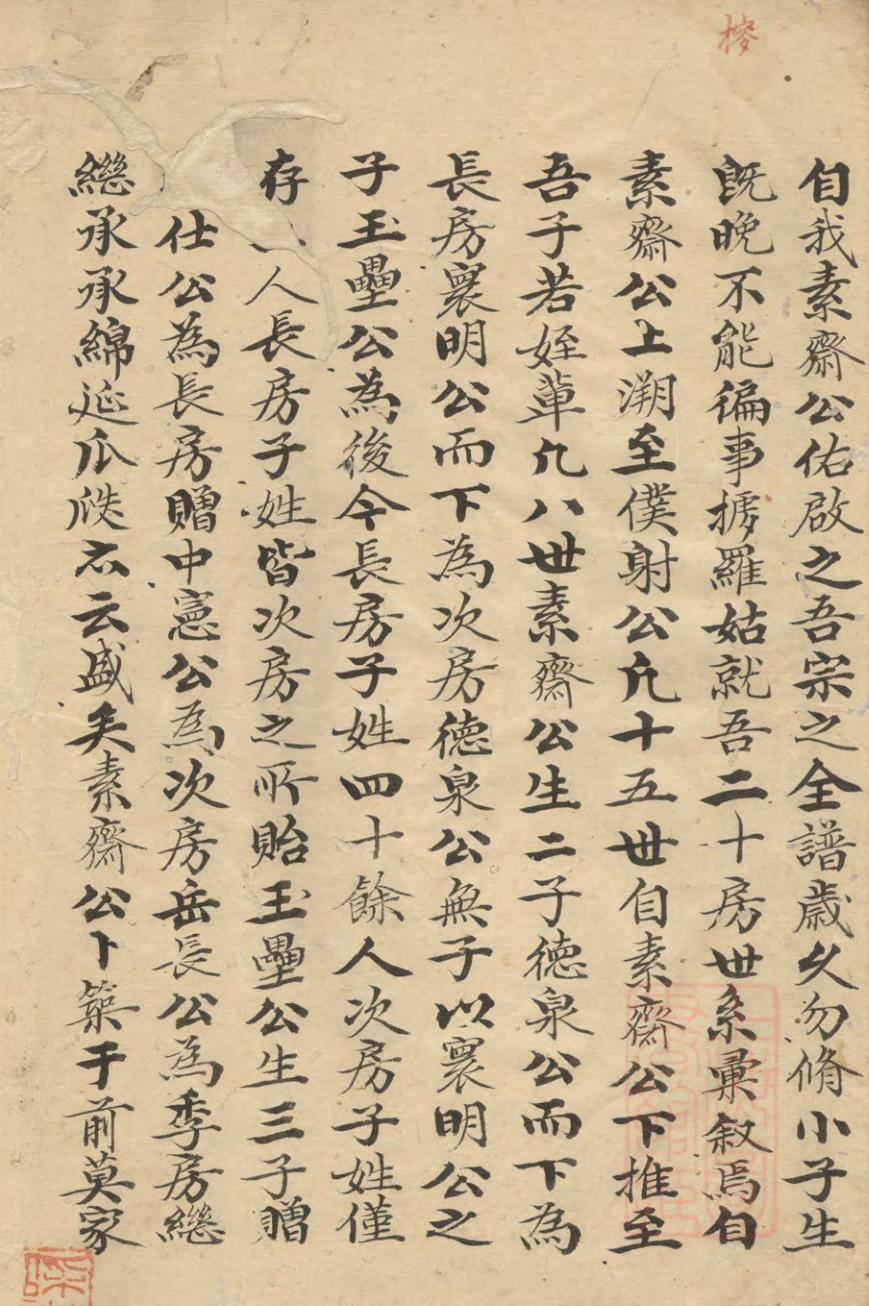 自我素齋公佑啟之吾宗之全譜歲久勿脩小子生
既晚不能徧事摭羅姑就吾二十房世系彚叙焉自
素齋公上溯至僕射公凢十五世自素齋公下推至
吾子若姪軰凢八世素齋公生二子德泉公而下為
長房襄明公而下為次房德泉公無子以襄明公之
子玉壘公為後今長房子姓四十餘人次房子姓僅
存人長房子姓皆次房之所貽玉壘公生三子贈
仕公為長房贈中憲公為次房岳長公為季房繼
繼承承綿延瓜瓞亦云盛矣素齋公卜築于前莫家